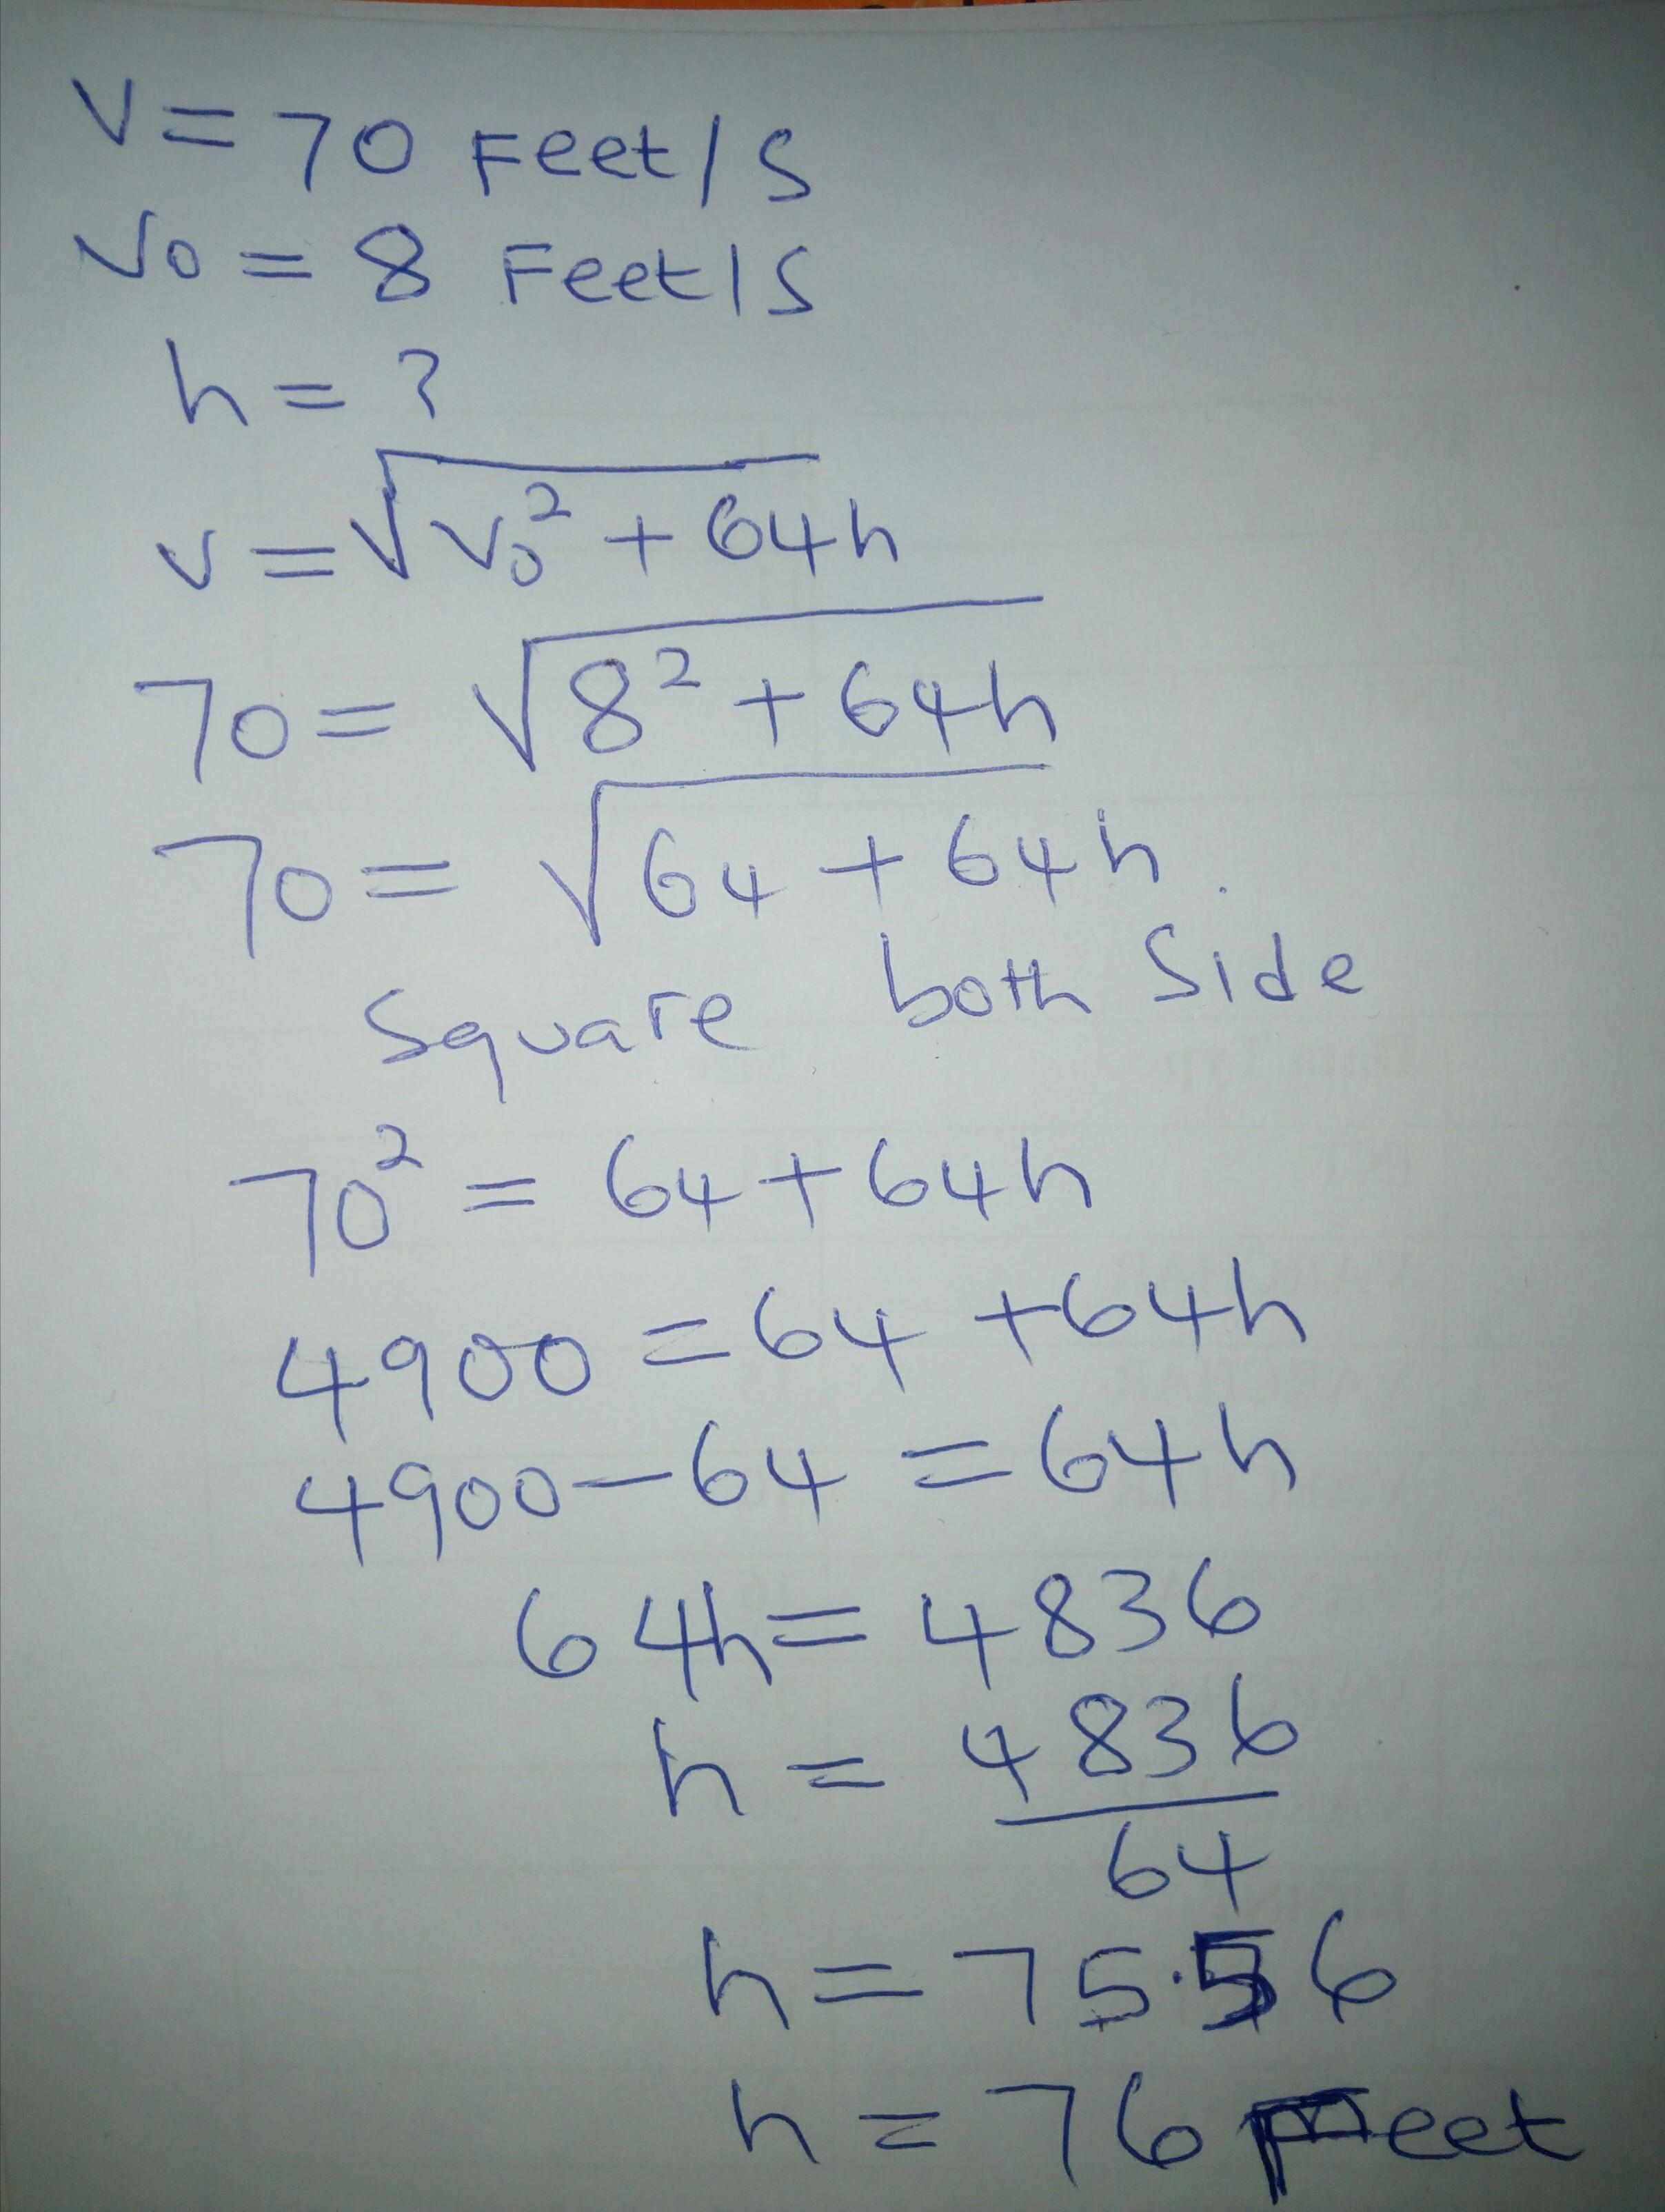 V = 70 Feet/S
Vo = 8 Feet/S
h = ?
v = √v₀² + 64h
70 = √8² + 64h
70 = √64 + 64h
Square both Side
70² = 64 + 64h
4900 = 64 + 64h
4900 - 64 = 64h
64h = 4836
h = 4836
64
h = 75.56
h = 76 Feet